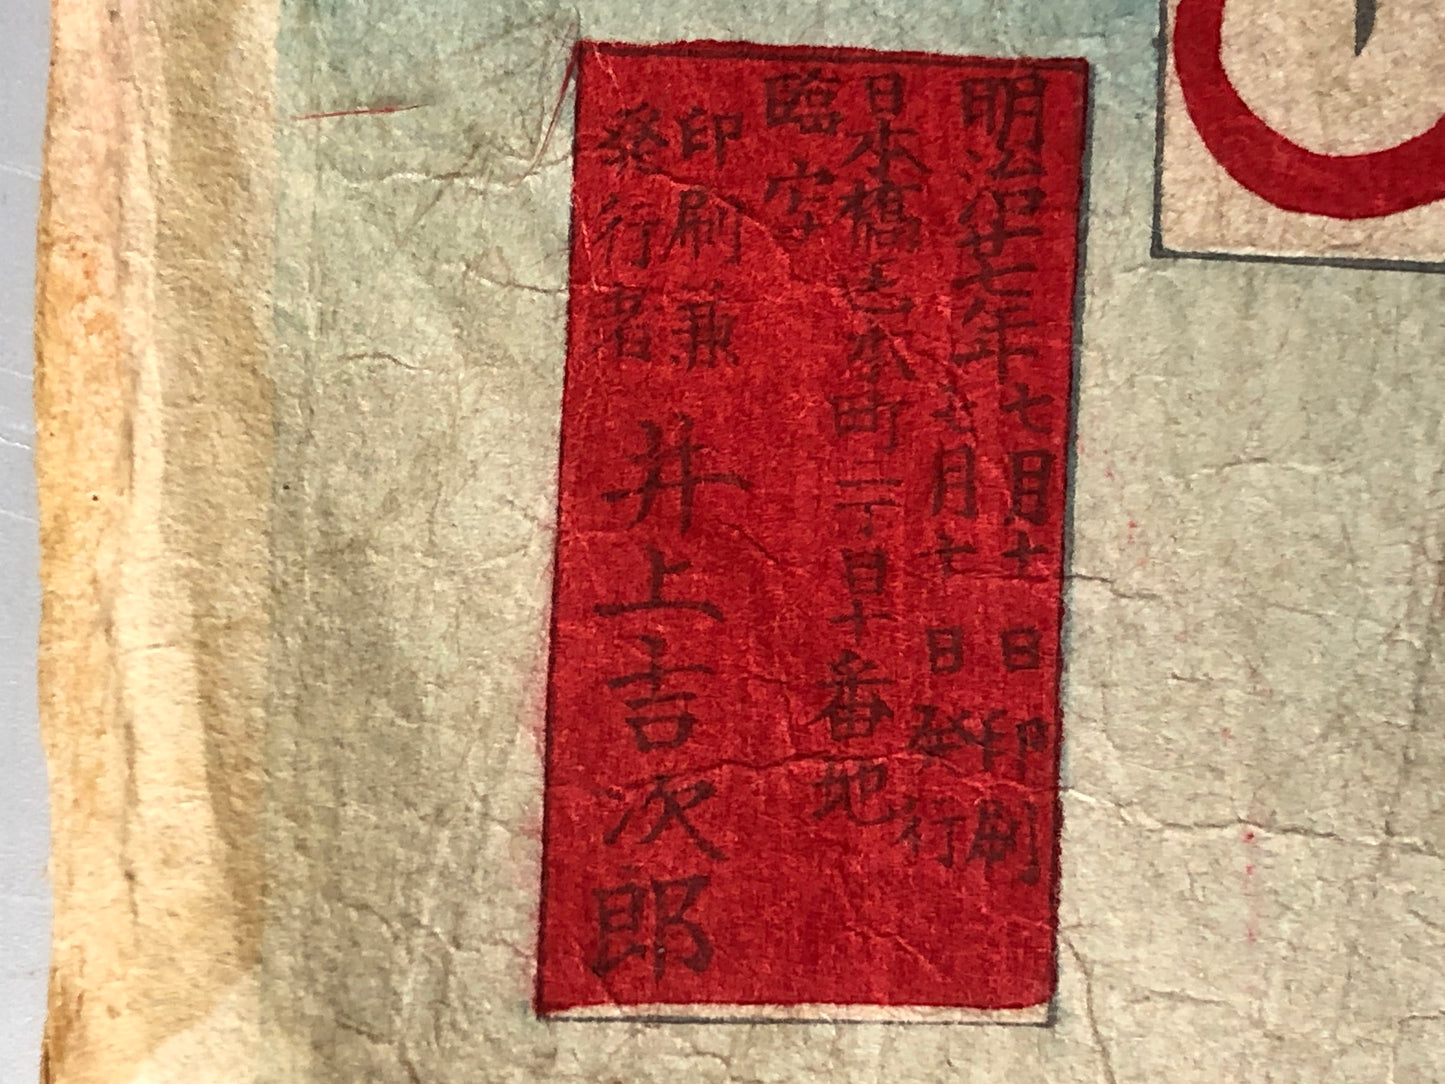 明治廿七年七月十日印刷
七月 日発行
日本橋 本町二丁目十番地
臨写
印刷兼
発行者
井上吉次郎